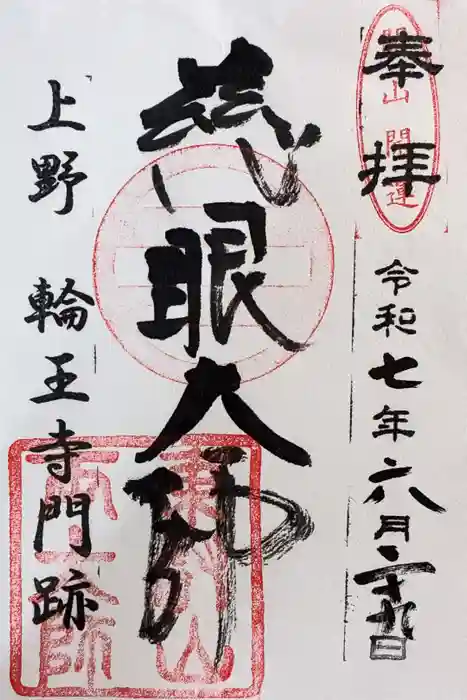 奉拝
令和七年六月二十九日
慈眼大師
上野 輪王寺門跡
東叡山
両大師
開山
開運